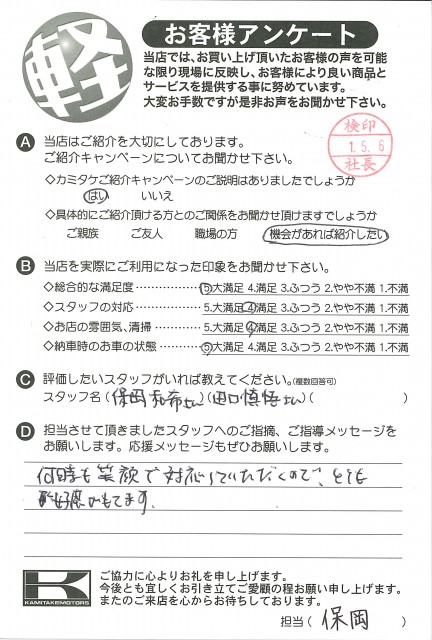 軽
お客様アンケート
当店では、お買い上げ頂いたお客様の声を可能
な限り現場に反映し、お客様により良い商品と
サービスを提供する事に努めています。
大変お手数ですが是非お声をお聞かせ下さい。
検印
1.5.6
社長
A 当店はご紹介を大切にしております。
ご紹介キャンペーンについてお聞かせ下さい。
◇カミタケご紹介キャンペーンのご説明はありましたでしょうか
はい いいえ
◇具体的にご紹介頂ける方とのご関係をお聞かせ頂けますでしょうか
ご親族 ご友人 職場の方 機会があれば紹介したい
B 当店を実際にご利用になった印象をお聞かせ下さい。
◇総合的な満足度……………… 5.大満足 4.満足 3.ふつう 2.やや不満 1.不満
◇スタッフの対応……………… 5.大満足 4.満足 3.ふつう 2.やや不満 1.不満
◇お店の雰囲気、清掃………… 5.大満足 4.満足 3.ふつう 2.やや不満 1.不満
◇納車時のお車の状態………… 5.大満足 4.満足 3.ふつう 2.やや不満 1.不満
C 評価したいスタッフがいれば教えてください。(複数回答可)
スタッフ名(保岡 さん)(田口慎悟さん)( )
D 担当させて頂きましたスタッフへのご指摘、ご指導メッセージを
お願いします。応援メッセージもぜひお願いします。
何時も笑顔で対応していただくので、とても
好感がもてます。
KAMITAKEMOTORS
ご協力に心よりお礼を申し上げます。
今後とも宜しくお引き立てご愛顧の程お願い申し上げます。
またのご来店を心からお待ちしております。
担当( 保岡 )